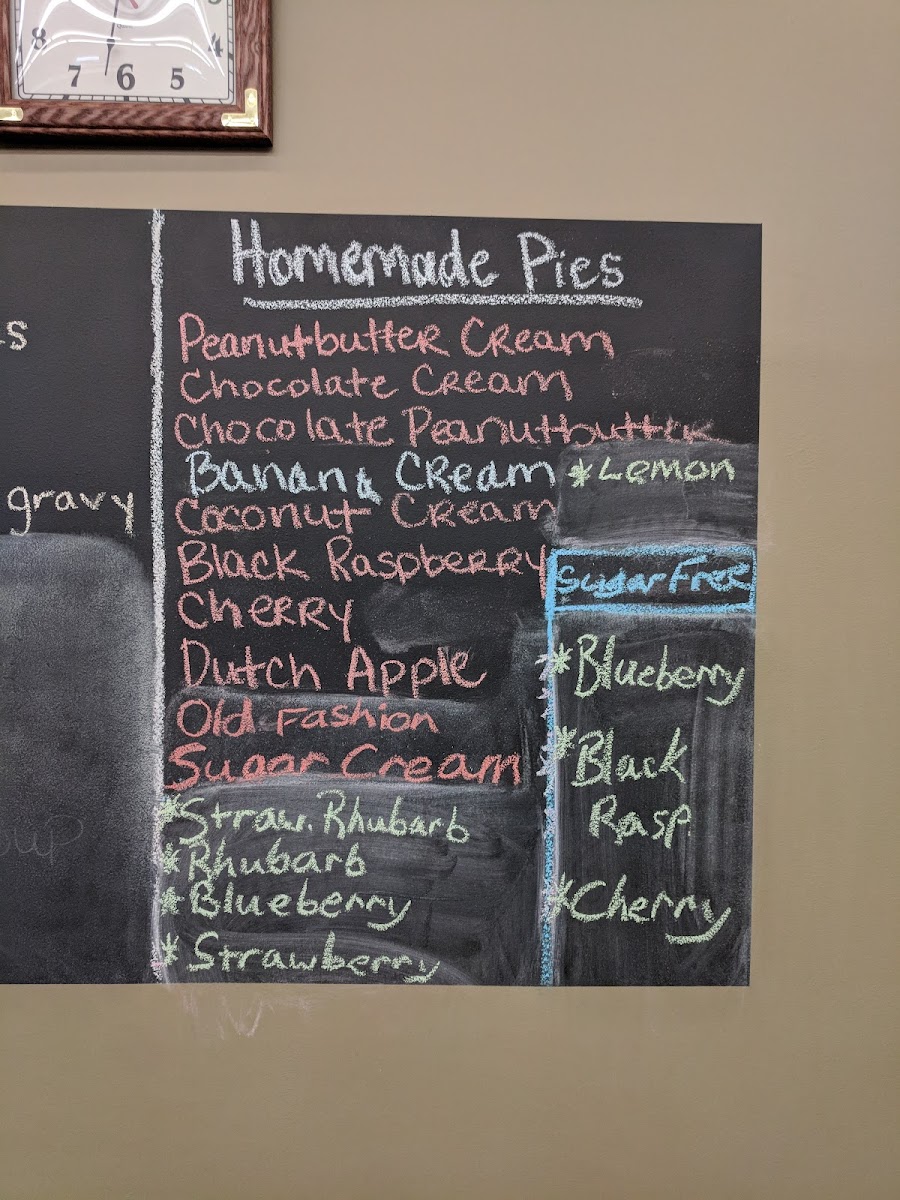 8
4
7 6 5
s
gravy
Homemade Pies
Peanutbutter Cream
Chocolate Cream
Chocolate Peanutbutter
Banana Cream
*Lemon
Coconut Cream
Black Raspberry
Cherry
Dutch Apple
Old Fashion
Sugar Cream
*Straw. Rhubarb
*Rhubarb
*Blueberry
*Strawberry
Sugar Free
*Blueberry
*Black
Rasp.
*Cherry